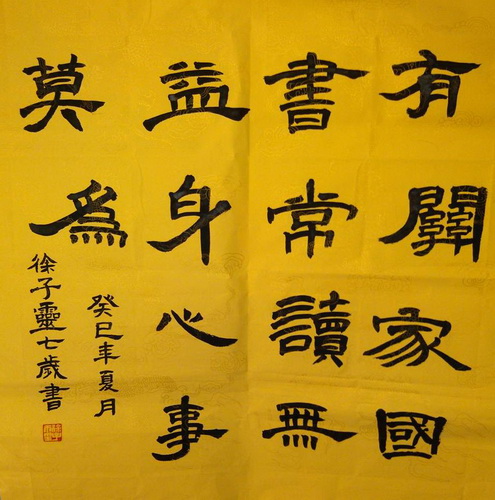 有關家國
書常讀無
益身心事
莫為
癸巳年夏月
徐子靈七歲書